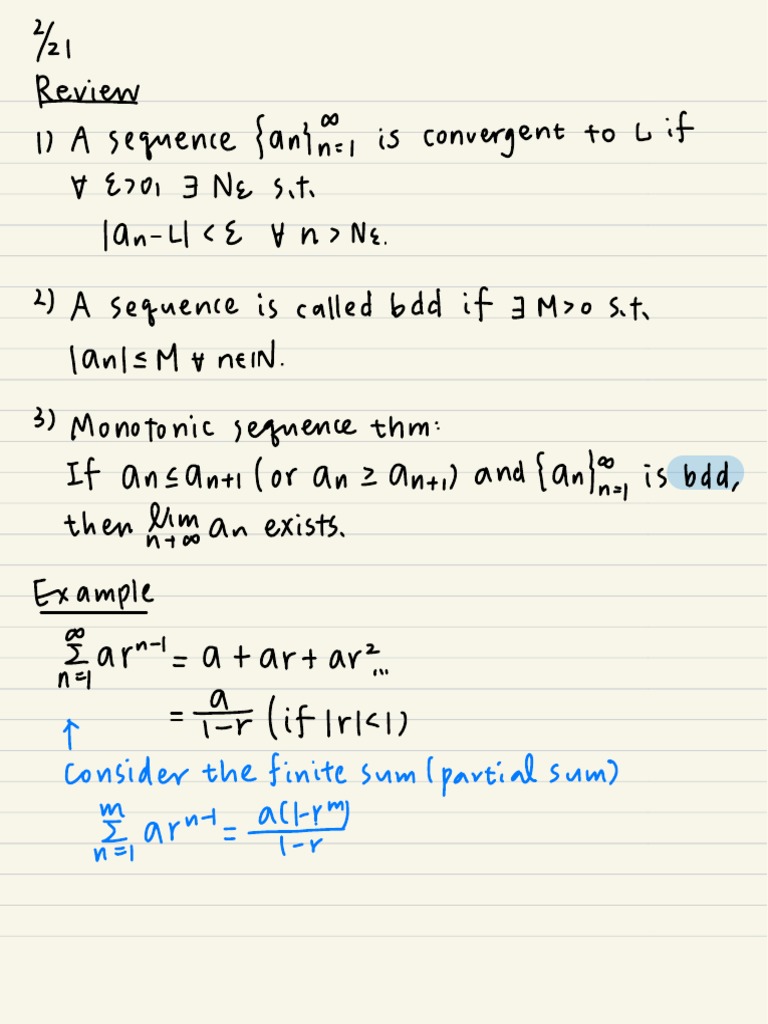 2/21
Review
1) A sequence {an}∞n=1 is convergent to L if
∀ ε>0, ∃ Nε s.t.
|an-L| < ε ∀ n > Nε.
2) A sequence is called bdd if ∃ M>0 s.t.
|an| ≤ M ∀ n∈ℕ.
3) Monotonic sequence thm:
If an ≤ an+1 (or an ≥ an+1) and {an}∞n=1 is bdd,
then lim n→∞ an exists.
Example
∞Σn=1 ar^n-1 = a + ar + ar^2...
= a/(1-r) (if |r|<1)
↑
Consider the finite sum (partial sum)
mΣn=1 ar^n-1 = a(1-r^m)/(1-r)